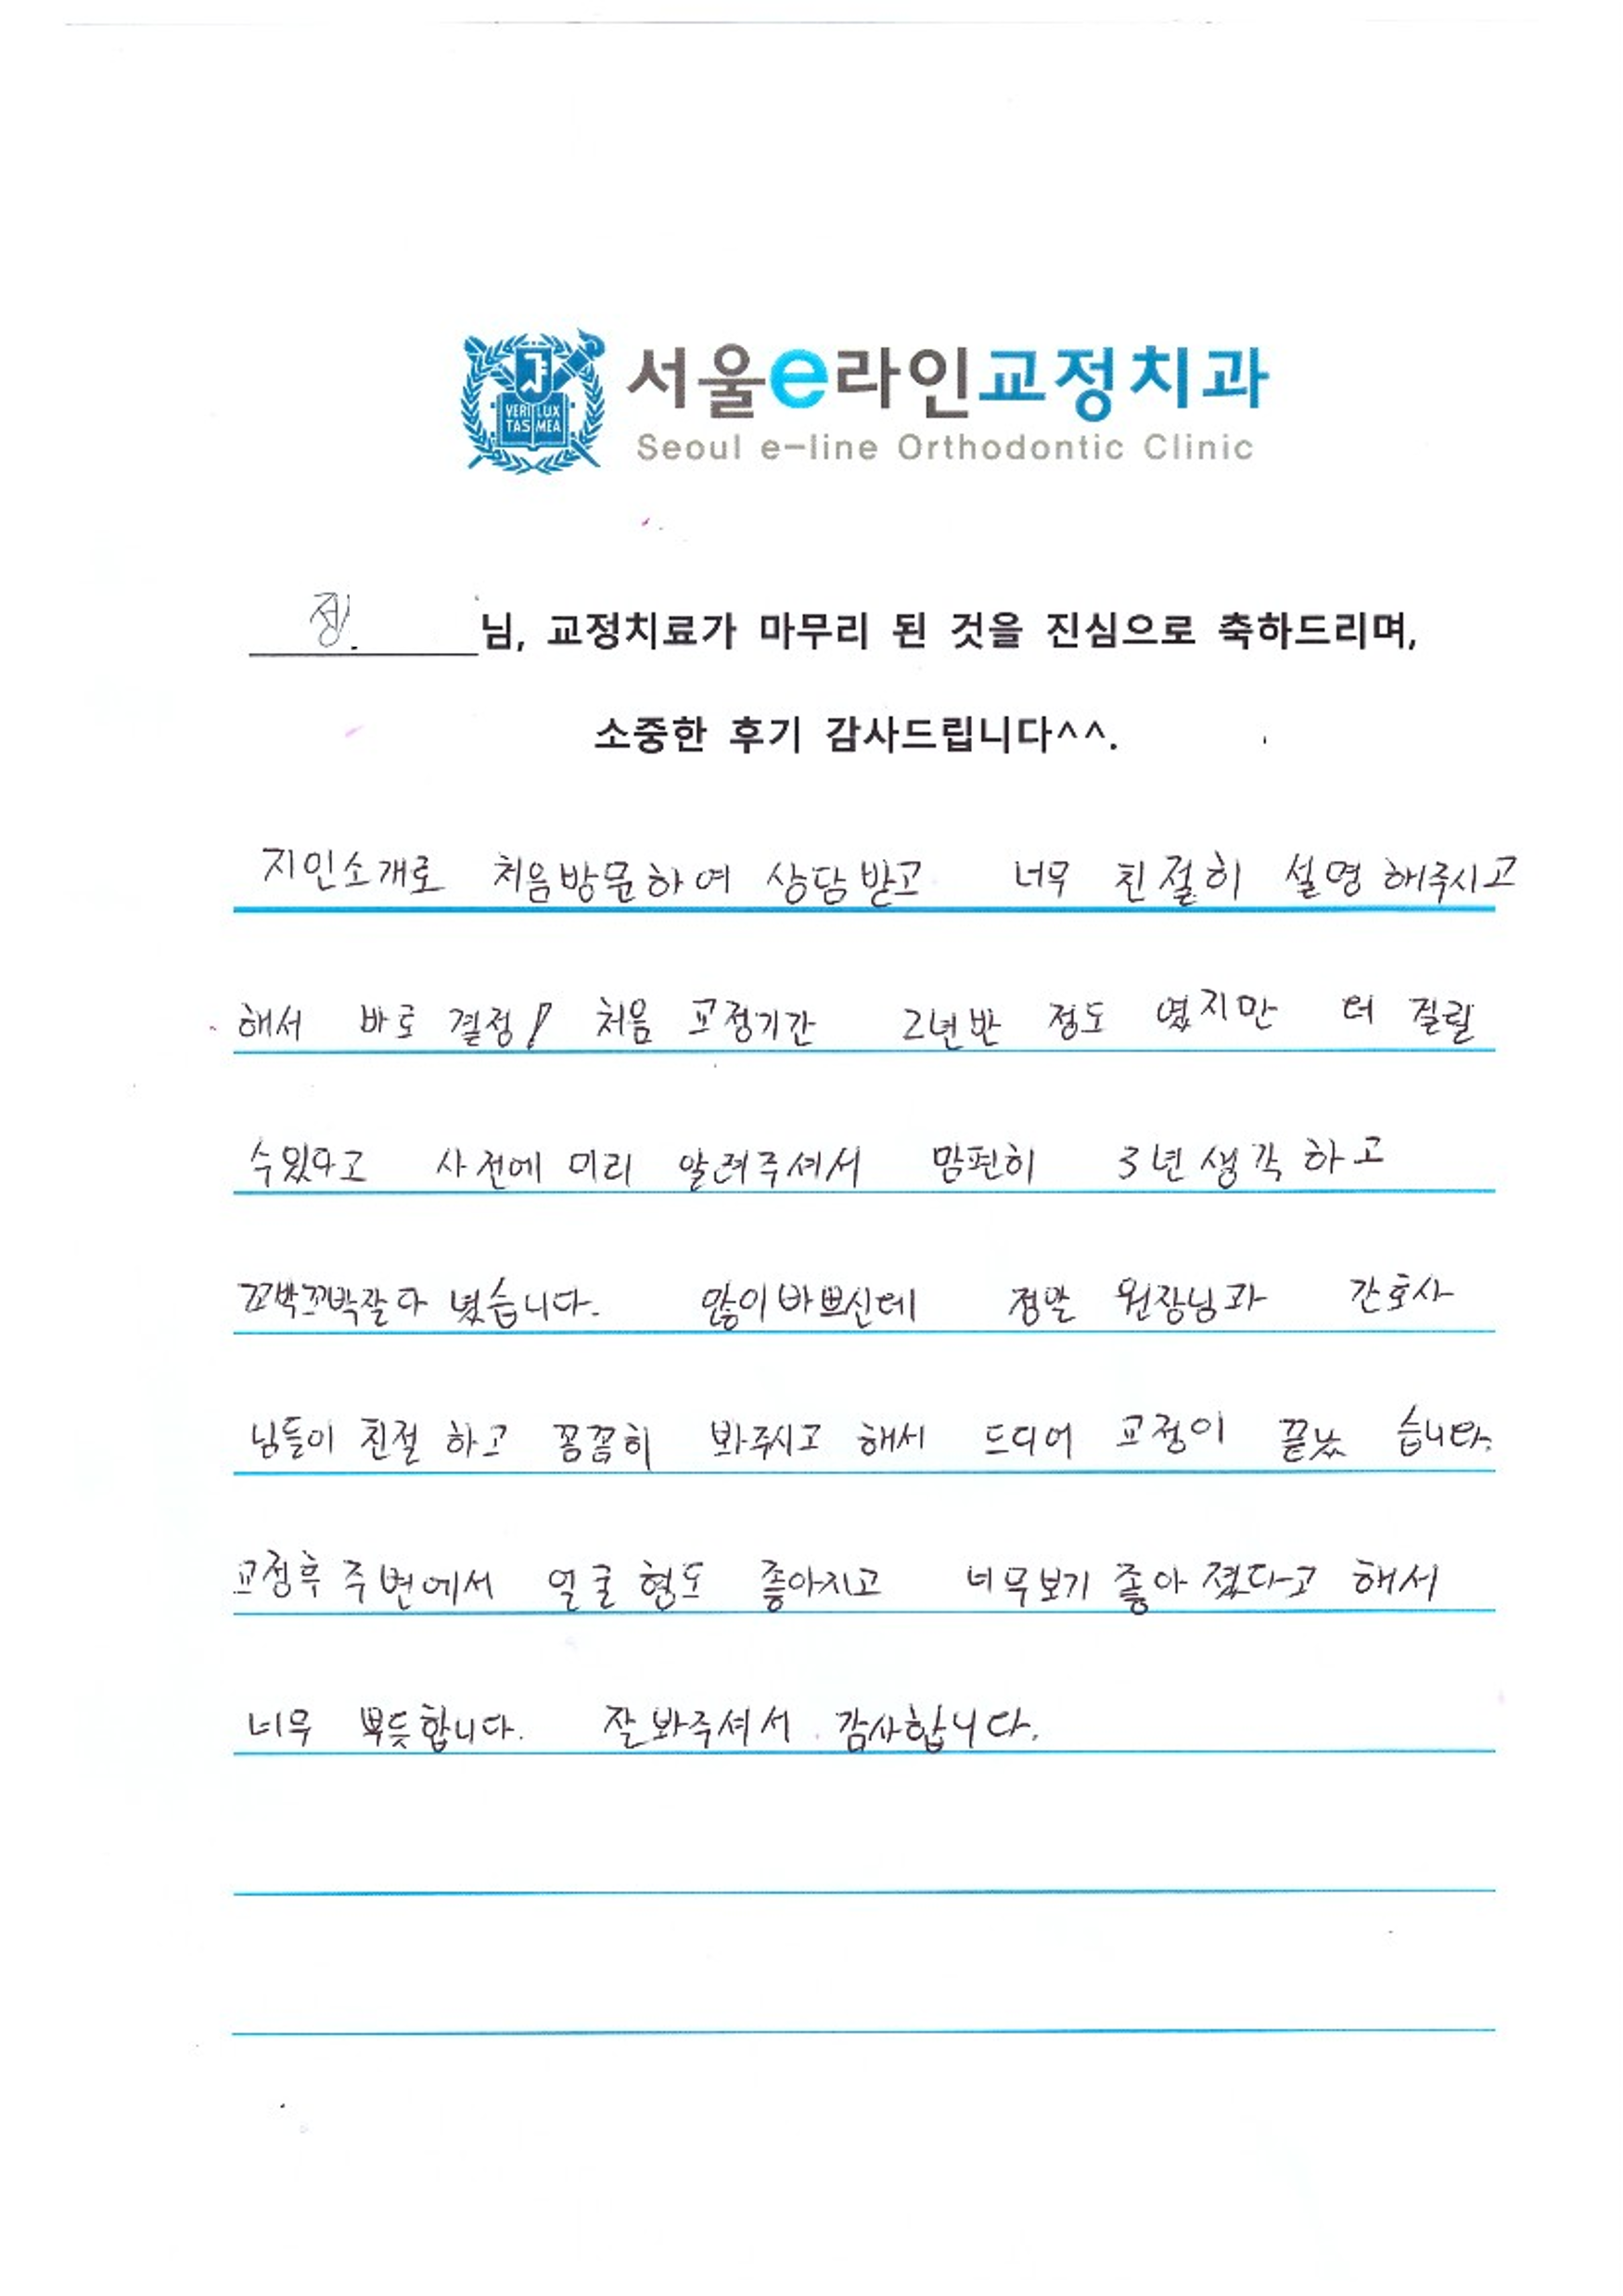 VERI LUX
TAS MEA
서울e라인교정치과
Seoul e-line Orthodontic Clinic
정. 님, 교정치료가 마무리 된 것을 진심으로 축하드리며,
소중한 후기 감사드립니다^^.
지인소개로 처음방문하여 상담받고 너무 친절히 설명해주시고
해서 바로 결정! 처음 교정기간 2년반 정도 였지만 더 질릴
수있다고 사전에 미리 알려주셔서 맘편히 3년생각하고
꼬박꼬박잘다녔습니다. 많이바쁘신데 정말 원장님과 간호사
님들이 친절하고 꼼꼼히 봐주시고 해서 드디어 교정이 끝났습니다.
교정후 주변에서 얼굴형도 좋아지고 너무보기좋아졌다고 해서
너무 뿌듯합니다. 잘봐주셔서 감사합니다.